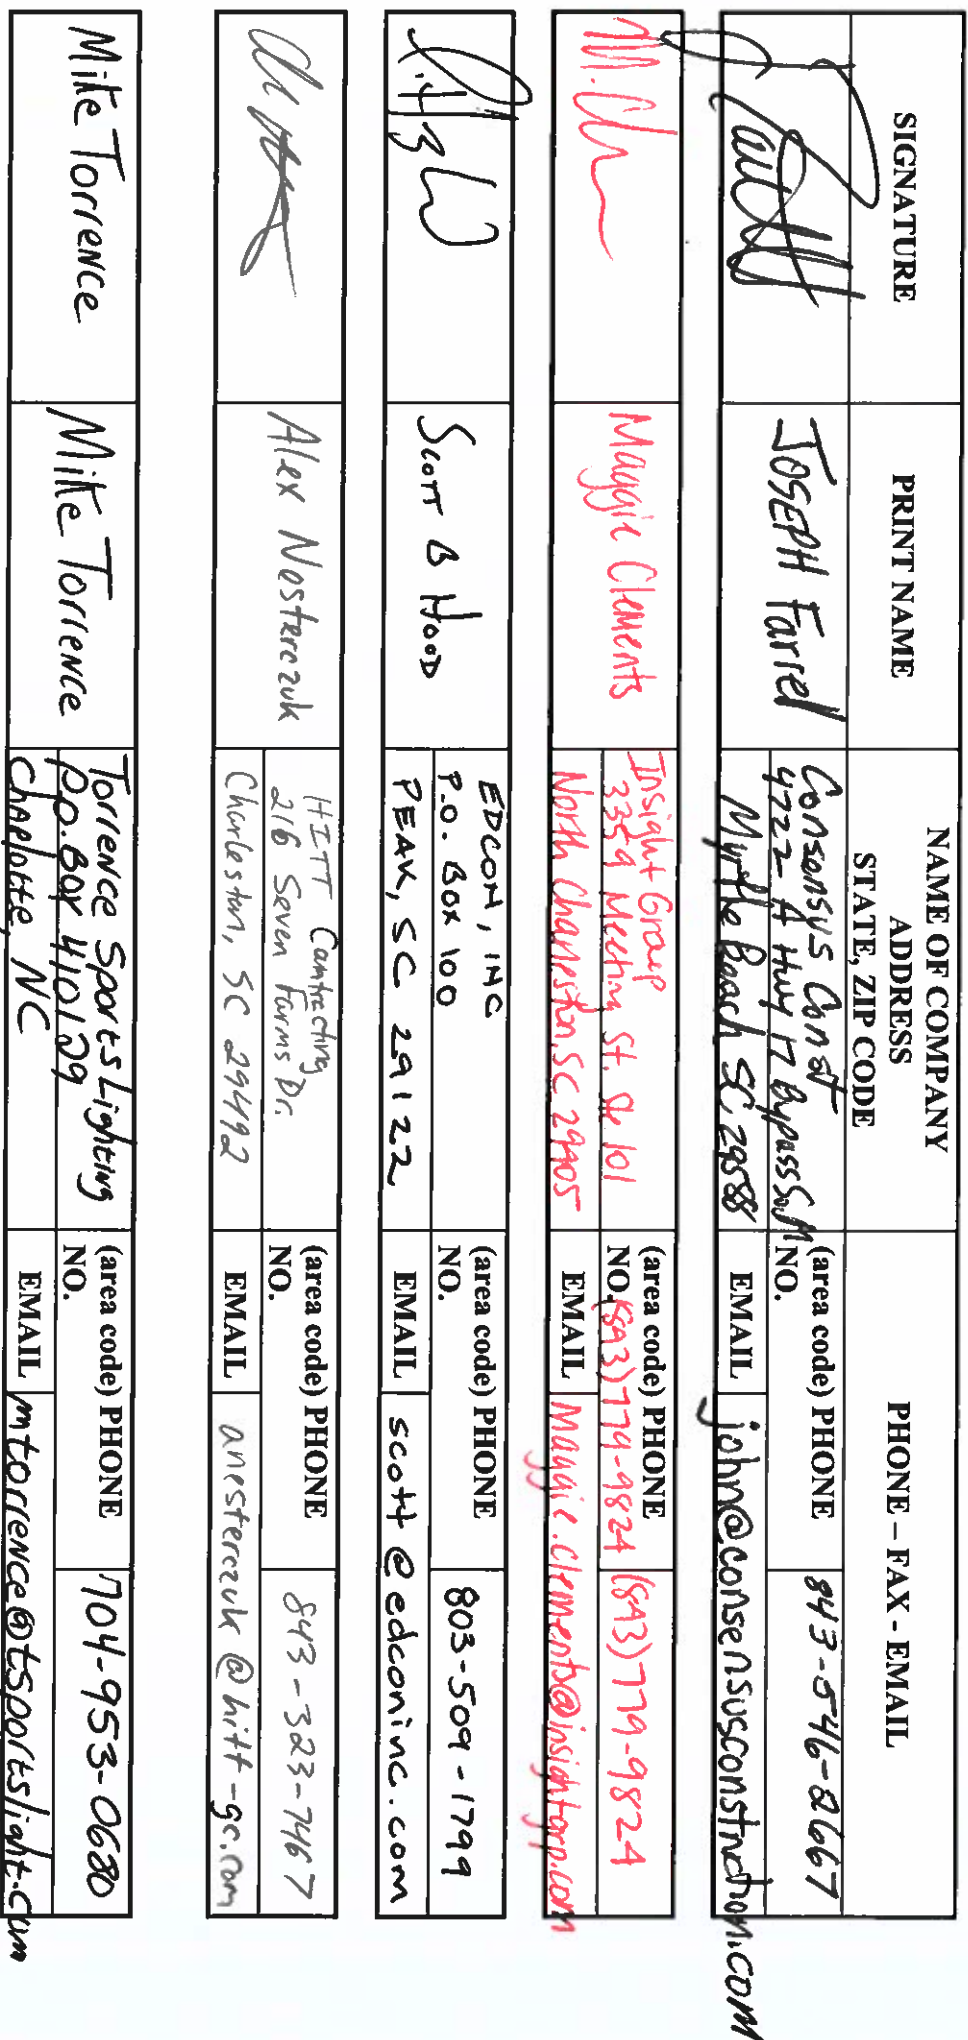 SIGNATURE
PRINT NAME
NAME OF COMPANY
ADDRESS
STATE, ZIP CODE
PHONE – FAX - EMAIL
JOSEPH Farrel
Consensys Const
4722-A Hwy 17 Bypass So. M
Myrtle Beach SC, 29588
(area code) PHONE
NO.
843-546-2667
EMAIL
john@consensusconstruction.com
M. Cl
Maggie Clements
Insight Group
3359 Meeting St. Ste 101
North Charleston, SC 29405
(area code) PHONE
NO. (843)779-9824
(843)779-9824
EMAIL
Maggie.Clements@insightgrp.com
Scott B Hood
EDCON, INC
P.O. Box 100
PEAK, SC 29122
(area code) PHONE
NO.
803-509-1799
EMAIL
scott@edconinc.com
Alex Nesterczuk
HITT Contracting
216 Seven Farms Dr.
Charleston, SC 29492
(area code) PHONE
NO.
843-323-7467
EMAIL
anesterczuk@hitt-gc.com
Mike Torrence
Mike Torrence
Torrence Sports Lighting
P.O. Box 410129
Charlotte, NC
(area code) PHONE
NO.
704-953-0680
EMAIL
mtorrence@tsportslight.com